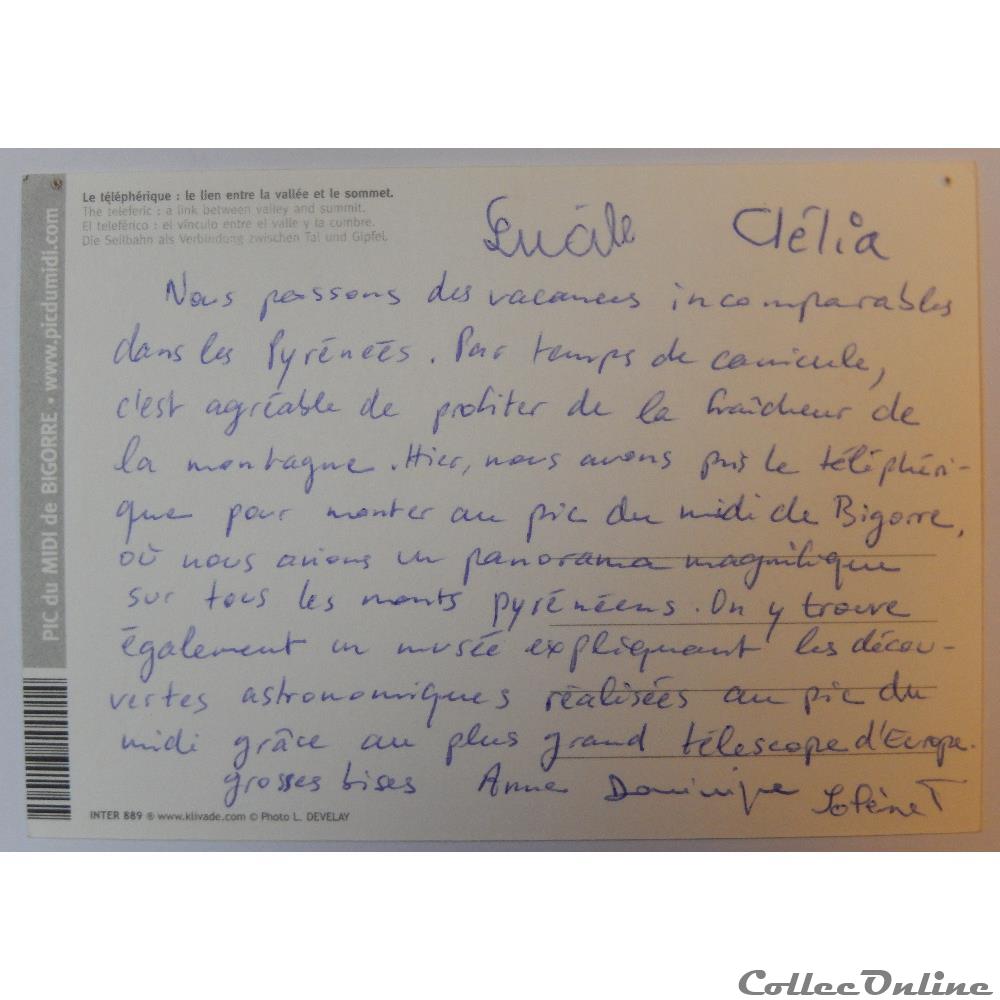 PIC du MIDI de BIGORRE • www.picdumidi.com
Le téléphérique : le lien entre la vallée et le sommet.
The teleferic : a link between valley and summit.
El teleférico : el vínculo entre el valle y la cumbre.
Die Seilbahn als Verbindung zwischen Tal und Gipfel.
Clélia
Nous passons des vacances incomparables
dans les Pyrénées. Par temps de canicule,
c'est agréable de profiter de la fraîcheur de
la montagne. Hier, nous avons pris le téléphéri-
que pour monter au pic du midi de Bigorre,
où nous avions un panorama magnifique
sur tous les monts pyrénéens. On y trouve
également un musée expliquant les décou-
vertes astronomiques réalisées au pic du
midi grâce au plus grand télescope d'Europe.
grosses bises Anne Dominique Solène T
INTER 889 ® www.klivade.com © Photo L. DEVELAY
CollecOnline